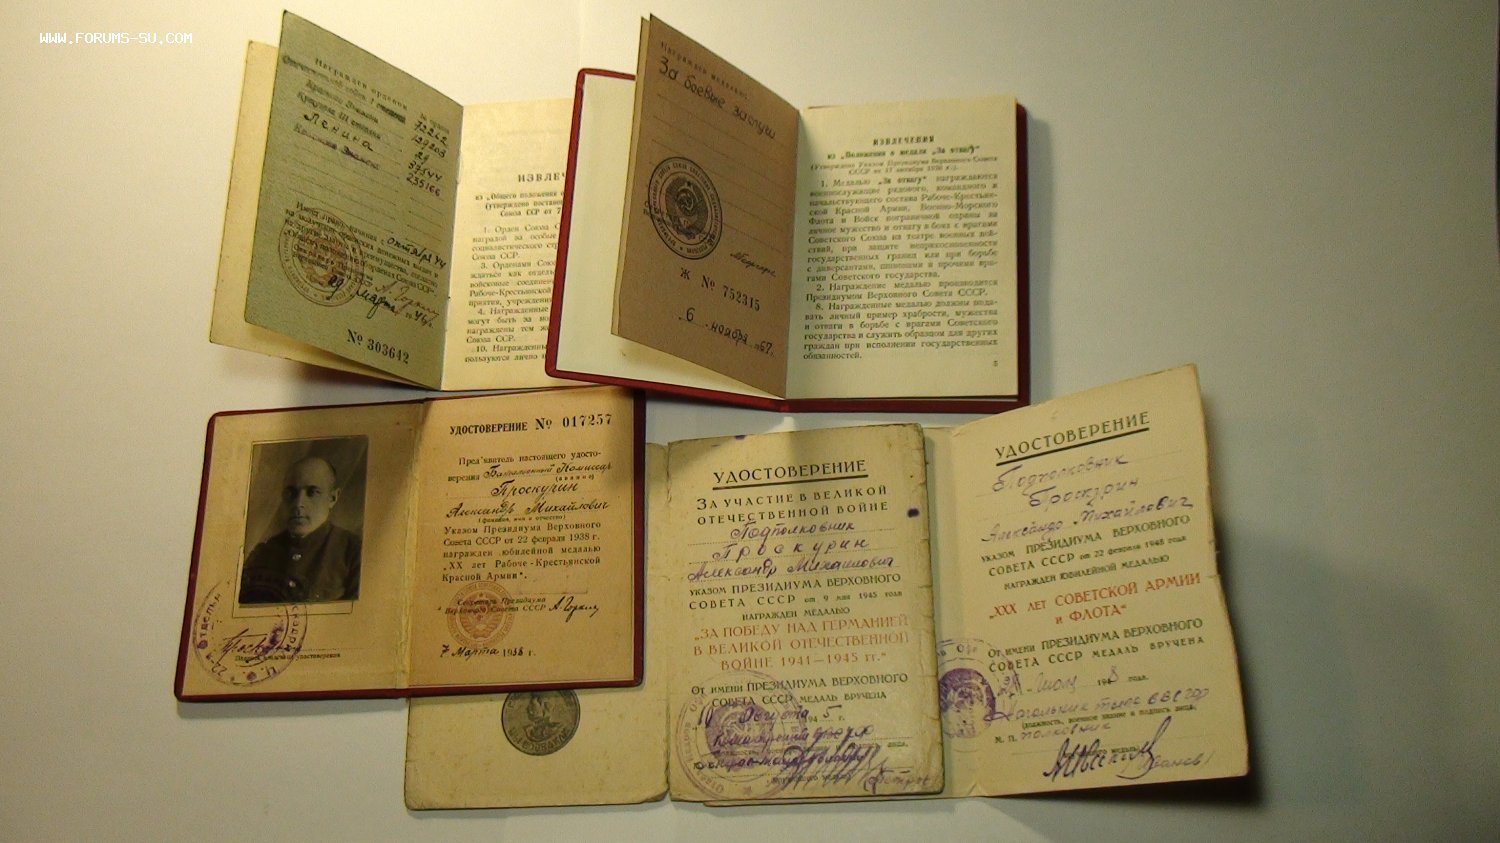 WWW.FORUMS-SU.COM
Награжден орденом
№ ордена
Отечественной войны I степени 72262
Красного Знамени
Ленина
Октября 44
29 марта
А. Горкин
№ 303642
ИЗВЛЕЧ
из „Общего положения о
Союза ССР от 7
1. Орден Союза С
наградой за особые
социалистического стр
Союза ССР.
3. Орденами Союз
ждаться как отдель
войсковые соединен
Рабоче-Крестьянской
приятия, учрежден
4. Награжденные
могут быть за но
награждены тем ж
Союза ССР.
10. Награжденны
пользуются лично п
Награжден медалью:
За боевые заслуги
Ж № 752315
6 ноября 1967 г.
ИЗВЛЕЧЕНИЯ
из „Положения о медали „За отвагу“
(Утверждено Указом Президиума Верховного Совета
СССР от 17 октября 1938 г.).
1. Медалью „За отвагу“ награждаются
военнослужащие рядового, командного и
начальствующего состава Рабоче-Крестьян-
ской Красной Армии, Военно-Морского
Флота и Войск пограничной охраны за
личное мужество и отвагу в боях с врагами
Советского Союза на театре военных дей-
ствий, при защите неприкосновенности
государственных границ или при борьбе
с диверсантами, шпионами и прочими вра-
гами Советского государства.
2. Награждение медалью производится
Президиумом Верховного Совета СССР.
8. Награжденные медалью должны пода-
вать личный пример храбрости, мужества
и отваги в борьбе с врагами Советского
государства и служить образцом для других
граждан при исполнении государственных
обязанностей.
5
УДОСТОВЕРЕНИЕ № 017257
Пред'явитель настоящего удосто-
верения Батальонный Комиссар
(звание)
Проскурин
Александр Михайлович
(фамилия, имя и отчество)
Указом Президиума Верховного
Совета СССР от 22 февраля 1938 г.
награжден юбилейной медалью
„XX лет Рабоче-Крестьянской
Красной Армии“.
Секретарь Президиума
Верховного Совета СССР А. Горкин
7 Марта 1938 г.
Проскурин
УДОСТОВЕРЕНИЕ
ЗА УЧАСТИЕ В ВЕЛИКОЙ
ОТЕЧЕСТВЕННОЙ ВОЙНЕ
Подполковник
Проскурин
Александр Михайлович
УКАЗОМ ПРЕЗИДИУМА ВЕРХОВНОГО
СОВЕТА СССР от 9 мая 1945 года
НАГРАЖДЕН МЕДАЛЬЮ
„ЗА ПОБЕДУ НАД ГЕРМАНИЕЙ
В ВЕЛИКОЙ ОТЕЧЕСТВЕННОЙ
ВОЙНЕ 1941—1945 гг.“
От имени ПРЕЗИДИУМА ВЕРХОВНОГО
СОВЕТА СССР МЕДАЛЬ ВРУЧЕНА
10 Августа 1945 г.
УДОСТОВЕРЕНИЕ
Подполковник
Проскурин
Александр Михайлович
УКАЗОМ ПРЕЗИДИУМА ВЕРХОВНОГО
СОВЕТА СССР от 22 февраля 1948 года
НАГРАЖДЕН ЮБИЛЕЙНОЙ МЕДАЛЬЮ
„XXX ЛЕТ СОВЕТСКОЙ АРМИИ
и ФЛОТА“
От имени ПРЕЗИДИУМА ВЕРХОВНОГО
СОВЕТА СССР МЕДАЛЬ ВРУЧЕНА
года.
Начальник тыла
(должность, военное звание и подпись лица,
М. П. полковник